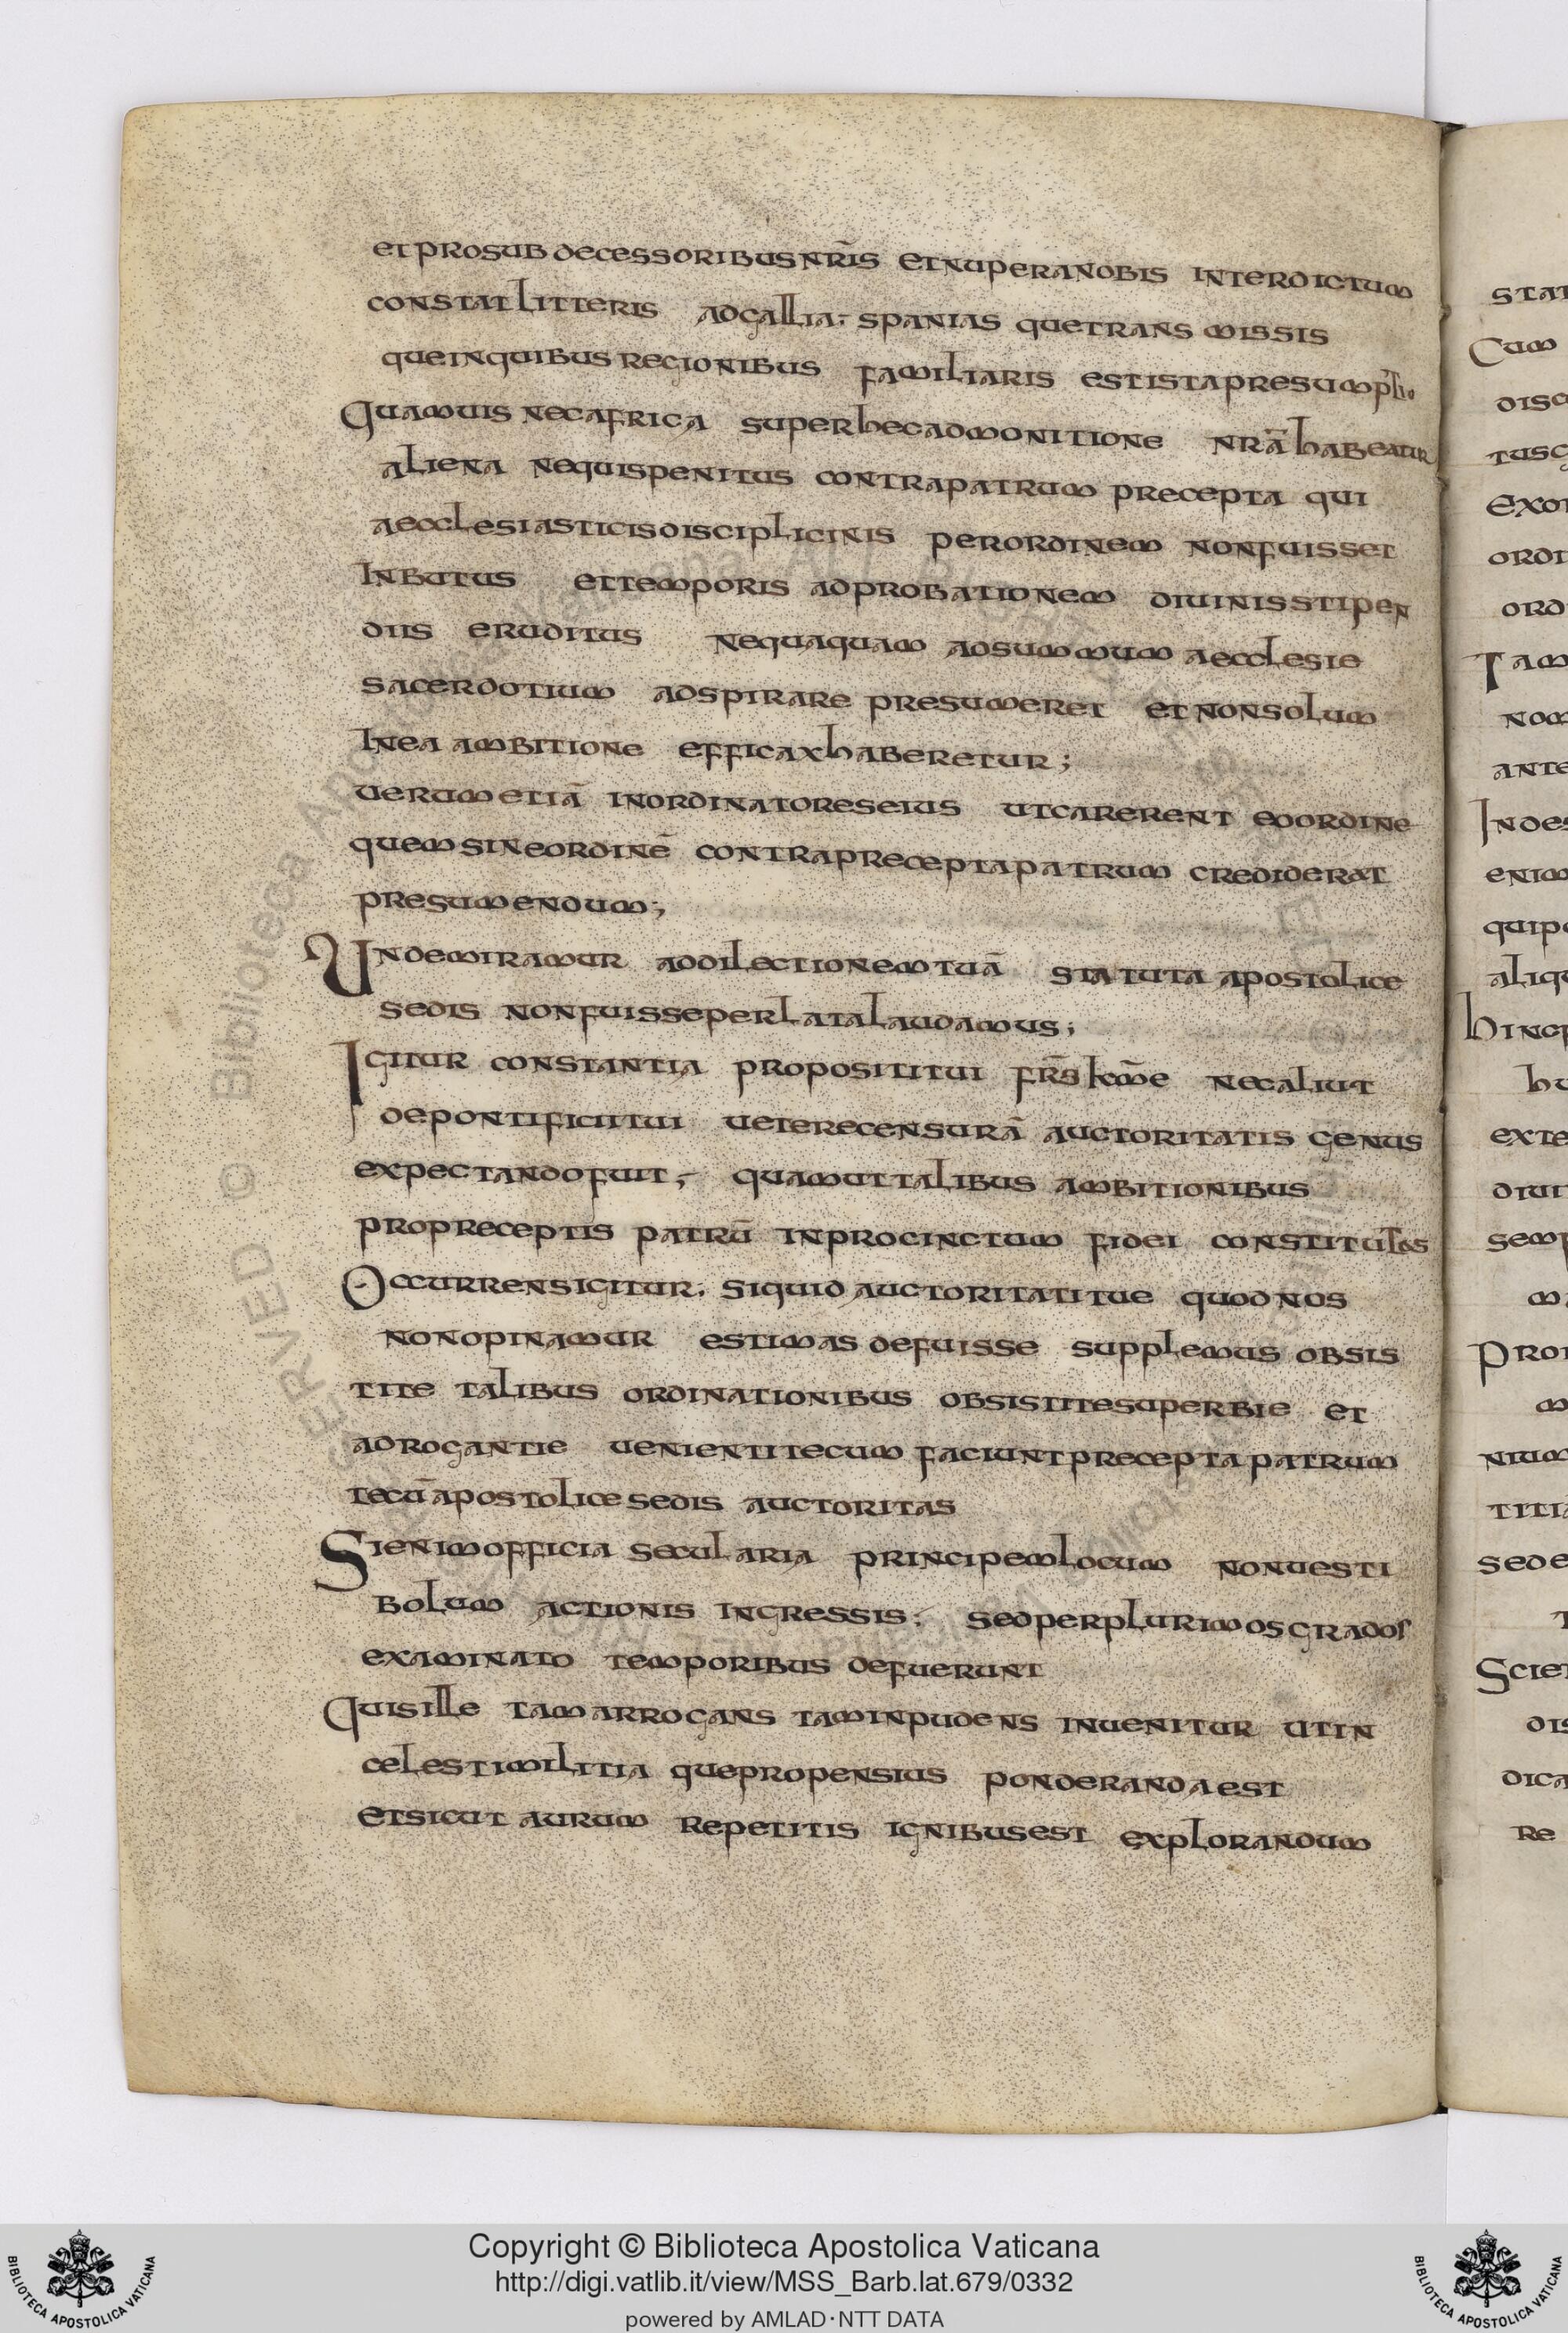 et prosub decessoribus nr̄is et nuper a nobis interdictum
constat litteris ad gallia; spanias que trans missis
que in quibus regionibus familiaris est ista presumptio
Quamuis nec africa super hec admonitione nrā habeatur
aliena nequis penitus contra patrum precepta qui
aecclesiasticis disciplicinis per ordinem non fuisset
Inbutus et temporis adprobationem diuinis stipen
diis eruditus nequaquam ad summum aecclesie
sacerdotium adspirare presumeret et non solum
In ea ambitione efficax haberetur;
uerum etiā in ordinatores eius ut carerent eo ordine
quem sine ordinē contra precepta patrum crediderat
presumendum;
Unde miramur ad dilectionem tuā statuta apostolice
sedis non fuisse perlata laudamus;
Igitur constantia propositi tui fr̄s km̄e nec aliut
de pontificii tui uetere censurā auctoritatis genus
expectando fuit; quam ut talibus ambitionibus
pro preceptis patrū in procinctum fidei constitutos
Occurrens igitur. si quid auctoritati tue quod nos
non opinamur estimas defuisse supplemus obsis
tite talibus ordinationibus obsistite superbie et
adrogantie uenienti tecum faciunt precepta patrum
tecū apostolice sedis auctoritas
Si enim officia secularia principem locum non uesti
bolum actionis ingressis. sed per plurimos grados
examinato temporibus defuerunt
Quis ille tam arrogans tam inpudens inuenitur ut in
celesti militia que propensius ponderanda est
et sicut aurum repetitis ignibus est explorandum
star
Cum
disc
tusc
exor
ordi
ord
Tam
nom
ante
Indes
enim
quip
aliqu
hinc
hu
exte
diui
semp
ma
Pro
m
nium
titia
sede
Scie
dis
dica
re
Copyright © Biblioteca Apostolica Vaticana
http://digi.vatlib.it/view/MSS_Barb.lat.679/0332
powered by AMLAD·NTT DATA
BIBLIOTECA APOSTOLICA VATICANA
BIBLIOTECA APOSTOLICA VATICANA